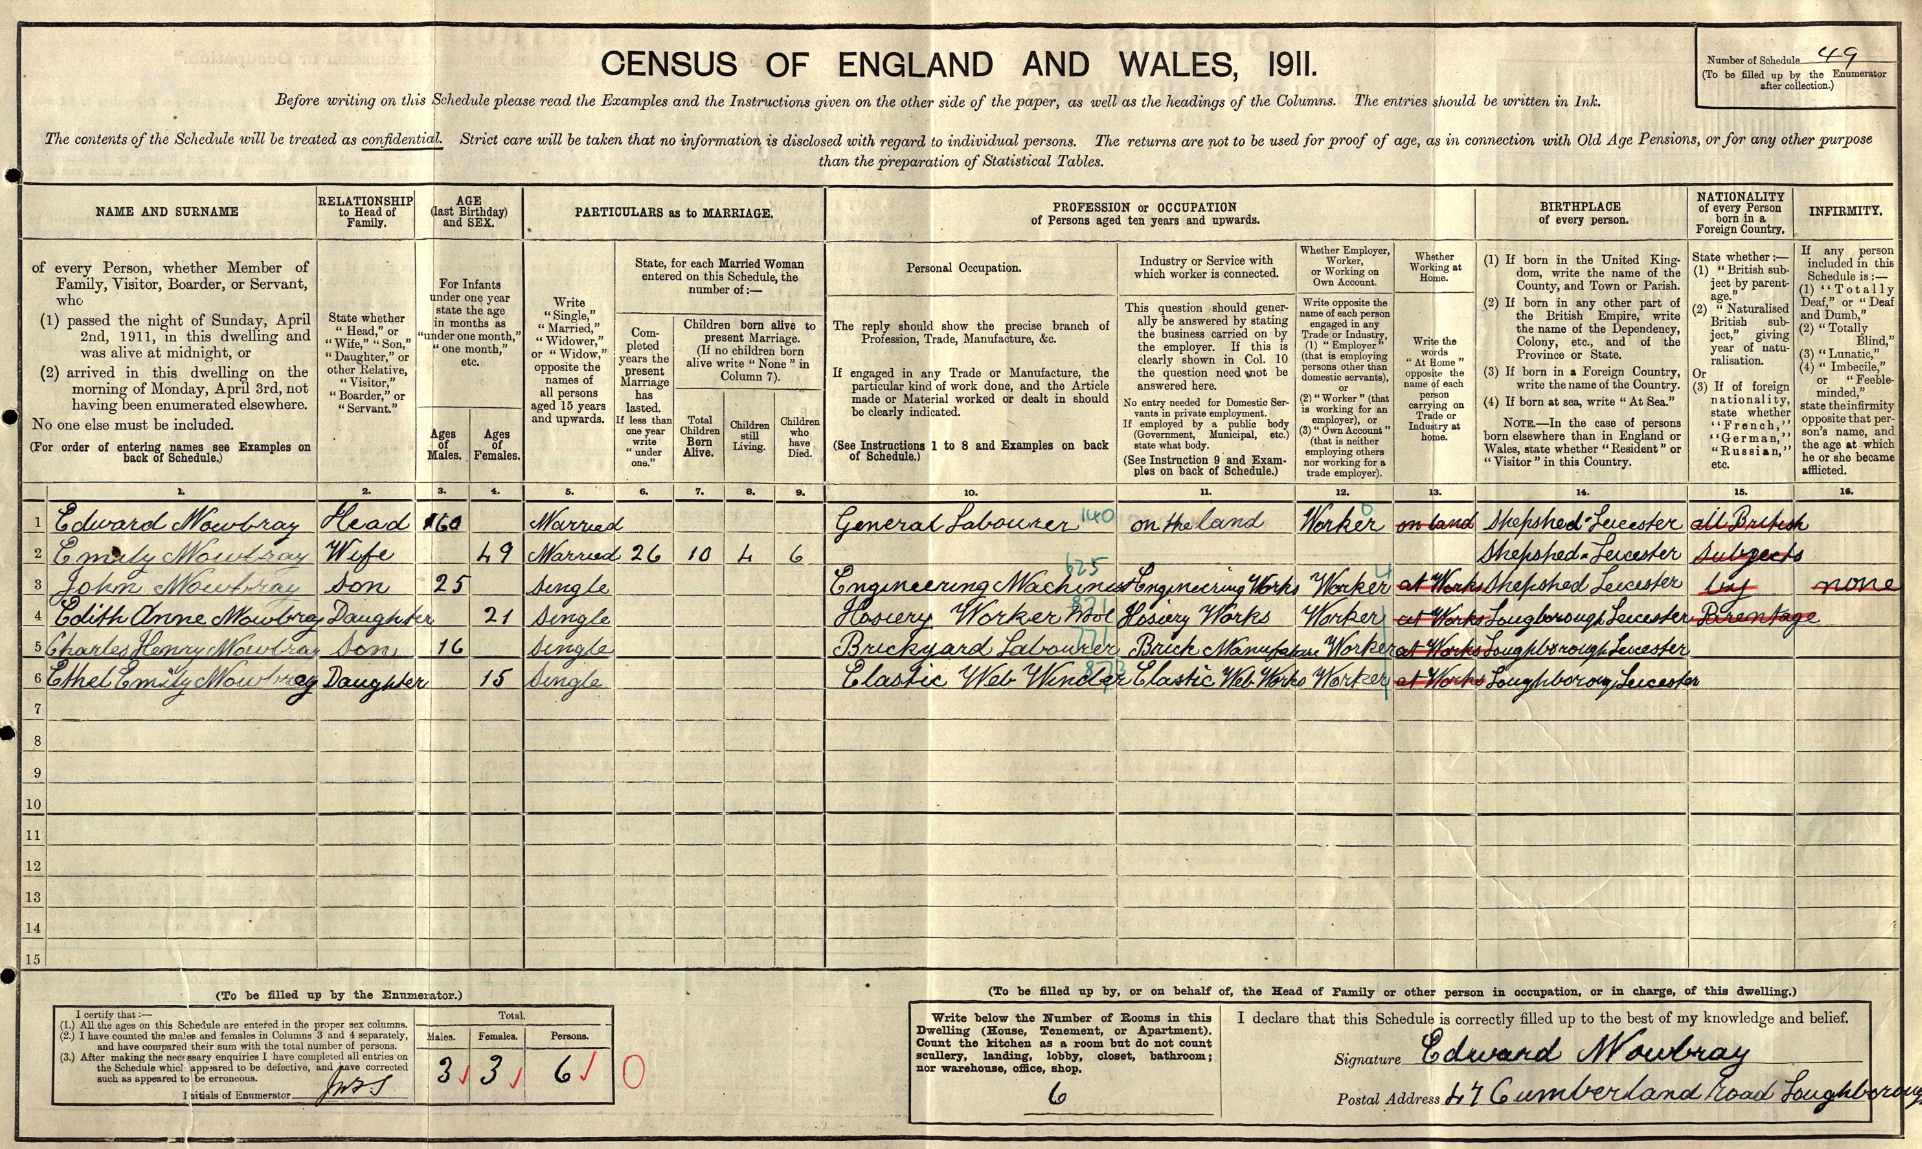 CENSUS OF ENGLAND AND WALES, 1911.
Number of Schedule 49
(To be filled up by the Enumerator
after collection.)
Before writing on this Schedule please read the Examples and the Instructions given on the other side of the paper, as well as the headings of the Columns. The entries should be written in Ink.
The contents of the Schedule will be treated as confidential. Strict care will be taken that no information is disclosed with regard to individual persons. The returns are not to be used for proof of age, as in connection with Old Age Pensions, or for any other purpose
than the preparation of Statistical Tables.
NAME AND SURNAME
of every Person, whether Member of
Family, Visitor, Boarder, or Servant,
who
(1) passed the night of Sunday, April
2nd, 1911, in this dwelling and
was alive at midnight, or
(2) arrived in this dwelling on the
morning of Monday, April 3rd, not
having been enumerated elsewhere.
No one else must be included.
(For order of entering names see Examples on
back of Schedule.)
RELATIONSHIP
to Head of
Family.
State whether
"Head," or
"Wife," "Son,"
"Daughter," or
other Relative,
"Visitor,"
"Boarder," or
"Servant."
AGE
(last Birthday)
and SEX.
For Infants
under one year
state the age
in months as
"under one month,"
"one month,"
etc.
Ages
of
Males.
Ages
of
Females.
PARTICULARS as to MARRIAGE.
Write
"Single,"
"Married,"
"Widower,"
or "Widow,"
opposite the
names of
all persons
aged 15 years
and upwards.
State, for each Married Woman
entered on this Schedule, the
number of:—
Com-
pleted
years the
present
Marriage
has
lasted.
If less than
one year
write
"under
one."
Children born alive to
present Marriage.
(If no children born
alive write "None" in
Column 7).
Total
Children
Born
Alive.
Children
still
Living.
Children
who
have
Died.
PROFESSION or OCCUPATION
of Persons aged ten years and upwards.
Personal Occupation.
The reply should show the precise branch of
Profession, Trade, Manufacture, &c.
If engaged in any Trade or Manufacture, the
particular kind of work done, and the Article
made or Material worked or dealt in should
be clearly indicated.
(See Instructions 1 to 8 and Examples on back
of Schedule.)
Industry or Service with
which worker is connected.
This question should gener-
ally be answered by stating
the business carried on by
the employer. If this is
clearly shown in Col. 10
the question need not be
answered here.
No entry needed for Domestic Ser-
vants in private employment.
If employed by a public body
(Government, Municipal, etc.)
state what body.
(See Instruction 9 and Exam-
ples on back of Schedule.)
Whether Employer,
Worker,
or Working on
Own Account.
Write opposite the
name of each person
engaged in any
Trade or Industry,
(1) "Employer"
(that is employing
persons other than
domestic servants),
or
(2) "Worker" (that
is working for an
employer), or
(3) "Own Account"
(that is neither
employing others
nor working for a
trade employer).
Whether
Working at
Home.
Write the
words
"At Home"
opposite the
name of each
person
carrying on
Trade or
Industry at
home.
BIRTHPLACE
of every person.
(1) If born in the United King-
dom, write the name of the
County, and Town or Parish.
(2) If born in any other part of
the British Empire, write
the name of the Dependency,
Colony, etc., and of the
Province or State.
(3) If born in a Foreign Country,
write the name of the Country.
(4) If born at sea, write "At Sea."
NOTE.—In the case of persons
born elsewhere than in England or
Wales, state whether "Resident" or
"Visitor" in this Country.
NATIONALITY
of every Person
born in a
Foreign Country.
State whether:—
(1) "British sub-
ject by parent-
age."
(2) "Naturalised
British sub-
ject," giving
year of natu-
ralisation.
Or
(3) If of foreign
nationality,
state whether
"French,"
"German,"
"Russian,"
etc.
INFIRMITY.
If any person
included in this
Schedule is:—
(1) "Totally
Deaf," or "Deaf
and Dumb,"
(2) "Totally
Blind,"
(3) "Lunatic,"
(4) "Imbecile,"
or "Feeble-
minded,"
state the infirmity
opposite that per-
son's name, and
the age at which
he or she became
afflicted.
1. 2. 3. 4. 5. 6. 7. 8. 9. 10. 11. 12. 13. 14. 15. 16.
1 Edward Mowbray Head 60 Married General Labourer 140 on the land Worker 0 on land Shepshed Leicester all British
2 Emily Mowbray Wife 49 Married 26 10 4 6 Shepshed Leicester subjects
3 John Mowbray Son 25 Single Engineering Machinist 625 Engineering Works Worker at Works Shepshed Leicester by none
4 Edith Anne Mowbray Daughter 21 Single Hosiery Worker Wool 871 Hosiery Works Worker at Works Lougborough Leicester Parentage
5 Charles Henry Mowbray Son 16 Single Brickyard Labourer 771 Brick Manufacture Worker at Works Loughborough Leicester
6 Ethel Emily Mowbray Daughter 15 Single Elastic Web Winder 873 Elastic Web Works Worker at Works Loughborough Leicester
7
8
9
10
11
12
13
14
15
(To be filled up by the Enumerator.)
I certify that:—
(1.) All the ages on this Schedule are entered in the proper sex columns.
(2.) I have counted the males and females in Columns 3 and 4 separately,
and have compared their sum with the total number of persons.
(3.) After making the necessary enquiries I have completed all entries on
the Schedule which appeared to be defective, and have corrected
such as appeared to be erroneous.
Initials of Enumerator
Total.
Males. Females. Persons.
3 3 6 0
(To be filled up by, or on behalf of, the Head of Family or other person in occupation, or in charge, of this dwelling.)
Write below the Number of Rooms in this
Dwelling (House, Tenement, or Apartment).
Count the kitchen as a room but do not count
scullery, landing, lobby, closet, bathroom;
nor warehouse, office, shop.
6
I declare that this Schedule is correctly filled up to the best of my knowledge and belief.
Signature Edward Mowbray
Postal Address 47 Cumberland road Loughborough